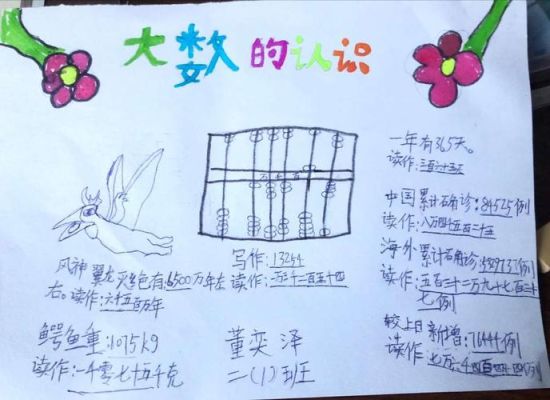 大数的认识
一年有365天。
读作:三百六十五
中国累计确诊:84525例
读作:八万四千五百二十五
海外累计确诊:
读作:五百三十二万九千七百三十
七例
较上日新增:76444例
读作:七万
四百四十四例
风神翼龙灭绝有6500万年左
右。读作:六千五百万年
写作:13254
读作:一万三千二百五十四
鳄鱼重:1075kg
读作:一千零七十五千克
董奕泽
二(1)班